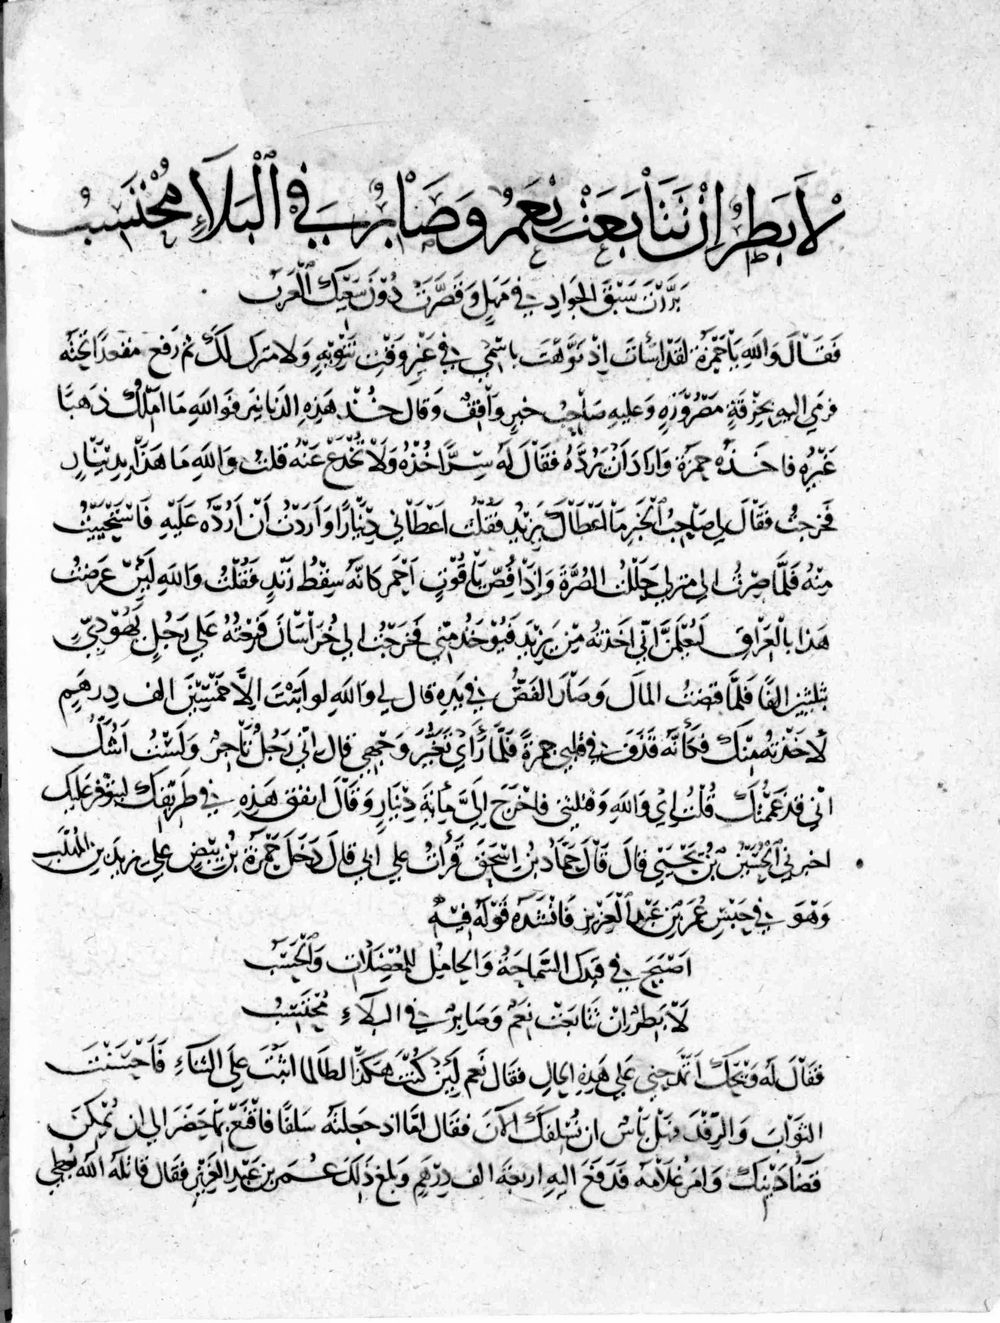 لَا بَطِرٌ إِنْ تَتَابَعَتْ نِعَمٌ وَصَابِرٌ فِي الْبَلَاءِ مُحْتَسِبُ
بَرَّزْتَ سَبْقَ الجَوَادِ فِي مَهَلٍ وَقَصَّرَتْ دُوْنَ سَعْيِكَ الْعَرَبُ
فَقَالَ وَاللهِ يَا حَمْزَةُ لَقَدْ اسَأتَ اذْ نَوَّهْتَ بِاسْمِي فِي غَيْرِ وَقْتِ تَنْوِيْهٍ وَلا مَنْزِلَ لَكَ ثم رَفَعَ مقْعدًا تحْتَهُ
فرمَى اليهِ بخِرْقَةٍ مَصْرُوْرَةٍ وَعليهِ صَاحِبُ خبرٍ وَاقِفٌ وَقالَ خُذْ هَذِهِ الدنَانِيْرَ فَوَاللهِ مَا امْلِكُ ذَهَبًا
غَيْرَهِ فاخَذَهُ حمزَةُ وَارَادَ أنْ يَرُدَّهُ فَقَالَ لَهُ سِرًّا خُذْهُ وَلَا تُخْدَعْ عَنْهُ قلت وَاللهِ مَا هَذَا بِدِيْنَارٍ
فَخَرَجْتُ فَقَالَ لِي صَاحِبُ الْخَبَرِ مَا اعْطَاكَ يَزِيْدُ فقُلْتُ اعْطَانِي دِيْنَارًا وَأرَدْتُ أنْ أرُدَّهُ عَلَيْهِ فَاسْتَحْيَيْتُ
مِنْهُ فَلَمَّا صِرْتُ الى منزلِي حَلَلْتُ الصُّرَّةَ وَإِذَا فُصُّ يَاقُوْتٍ أحْمَرَ كَانَّهُ سِقْطُ زَنْدٍ فَقُلْتُ وَاللهِ لَئِنْ عَرَضْتُ
هَذَا بالْعِرَاقِ لَيُعْلَمَنَّ انّي اخَذتُهُ مِنْ يَزِيْدَ فَيُوْخَذُ مِنّي فَخَرَجْتُ الى خُرَاسَانَ فَبِعْتُهُ عَلَى رَجُلٍ يَهُوْدِيٍّ
بثلثين الفًا فَلَمَّا قبضتُ المالَ وَصَارَ الفَصُّ فِي يَدِهِ قَالَ لِي وَاللهِ لو ابَيْتَ الَّا خَمْسِيْنَ الف دِرهَمٍ
لَاخَذتهُ مِنْكَ فَكَأنَّهُ قَذَفَ فِي قلبِي جمرَةً فَلَمَّا رَأَى تَغَيُّرَ وَجْهِي قال انّي رَجُلٌ تَاجِرٌ وَلَسْتُ اشُكُّ
انّي قد غَمَمْتُكَ قُلْتُ اِي وَاللهِ وَقتلتنِي فاخْرَجَ الَيَّ مأئَةَ دِيْنَارٍ وَقَالَ انفِق هَذِهِ فِي طَرِيْقِكَ ليتوَفَّرَ عَليكَ
اخبرني الْحُسَيْنُ بْنُ يَحْيَى قالَ قَالَ حَمَّادُ بن اسْحَقَ قَرَأتُ على ابي قَالَ دَخَلَ حَمْزَةُ بْنُ بِيْضٍ على يزيد بن المُهَلَّبِ
وَهْوَ فِي حَبْسِ عُمَرَ بْنِ عَبْدِ الْعَزِيْزِ فَانْشَدَهُ قَوْلَهُ فِيْهِ
اَصْبَحَ فِي قَيْدِكَ السَّمَاحَةُ وَالحَامِلُ لِلْمُعْضِلَاتِ وَالْحَسَبُ
لَا بَطِرٌ انْ تَتَابَعَتْ نِعَمٌ وَصَابِرٌ فِي البَلَاءِ مُحْتَسِبُ
فَقَالَ لَهُ وَيْحَكَ اتمْدَحُنِي عَلَى هَذِهِ الحَالِ فَقَالَ نَعَم لَئِنْ كُنْتَ هَكَذَا لطَالَمَا اثَبْتَ عَلَى الثنَاءِ فَاَحْسَنْتَ
الثوَابَ وَالرِّفْدَ فهَل بَاسٌ ان نُسْلِفَكَ الْآنَ فقَالَ امَّا اذ جَعلْتَهُ سَلفًا فَاقْنَعْ بمَا حَضَرَ الى ان يُمْكِنَ
قضَاءُ دَيْنِكَ وَامَرَ غُلَامَهُ فَدَفَعَ اليْهِ اربعَةَ الف دِرْهَمٍ وَبَلَغَ ذَلِكَ عُمَرَ بن عَبْدِ العَزِيْزِ فَقَال قَاتلَهُ اللهُ يُعْطِي